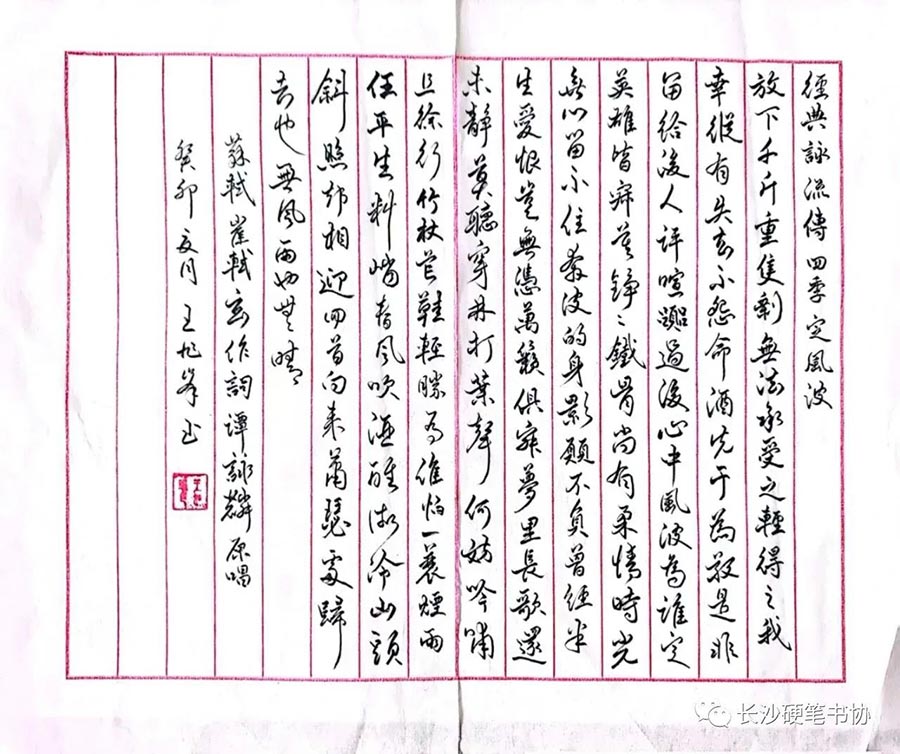 經典詠流傳四季定風波
放下千斤重隻剩無法承受之輕得之我
幸縱有失去不怨命酒先干為敬是非
留給後人评喧嚣過後心中風波為誰定
英雄皆寂莫錚〻鐵骨尚有柔情時光
無心留不住奔波的身影願不負曾經半
生愛恨豈無憑萬籟俱寂夢里長歌還
未靜莫聽穿林打葉聲何妨吟嘯
且徐行竹杖芒鞋輕勝馬誰怕一蓑煙雨
任平生料峭春風吹酒醒微冷山頭
斜照却相迎回首向来蕭瑟處歸
去也無風雨也無晴
蘇軾崔軾玄作詞譚詠麟原唱
癸卯夏月王旭峯书
长沙硬笔书协